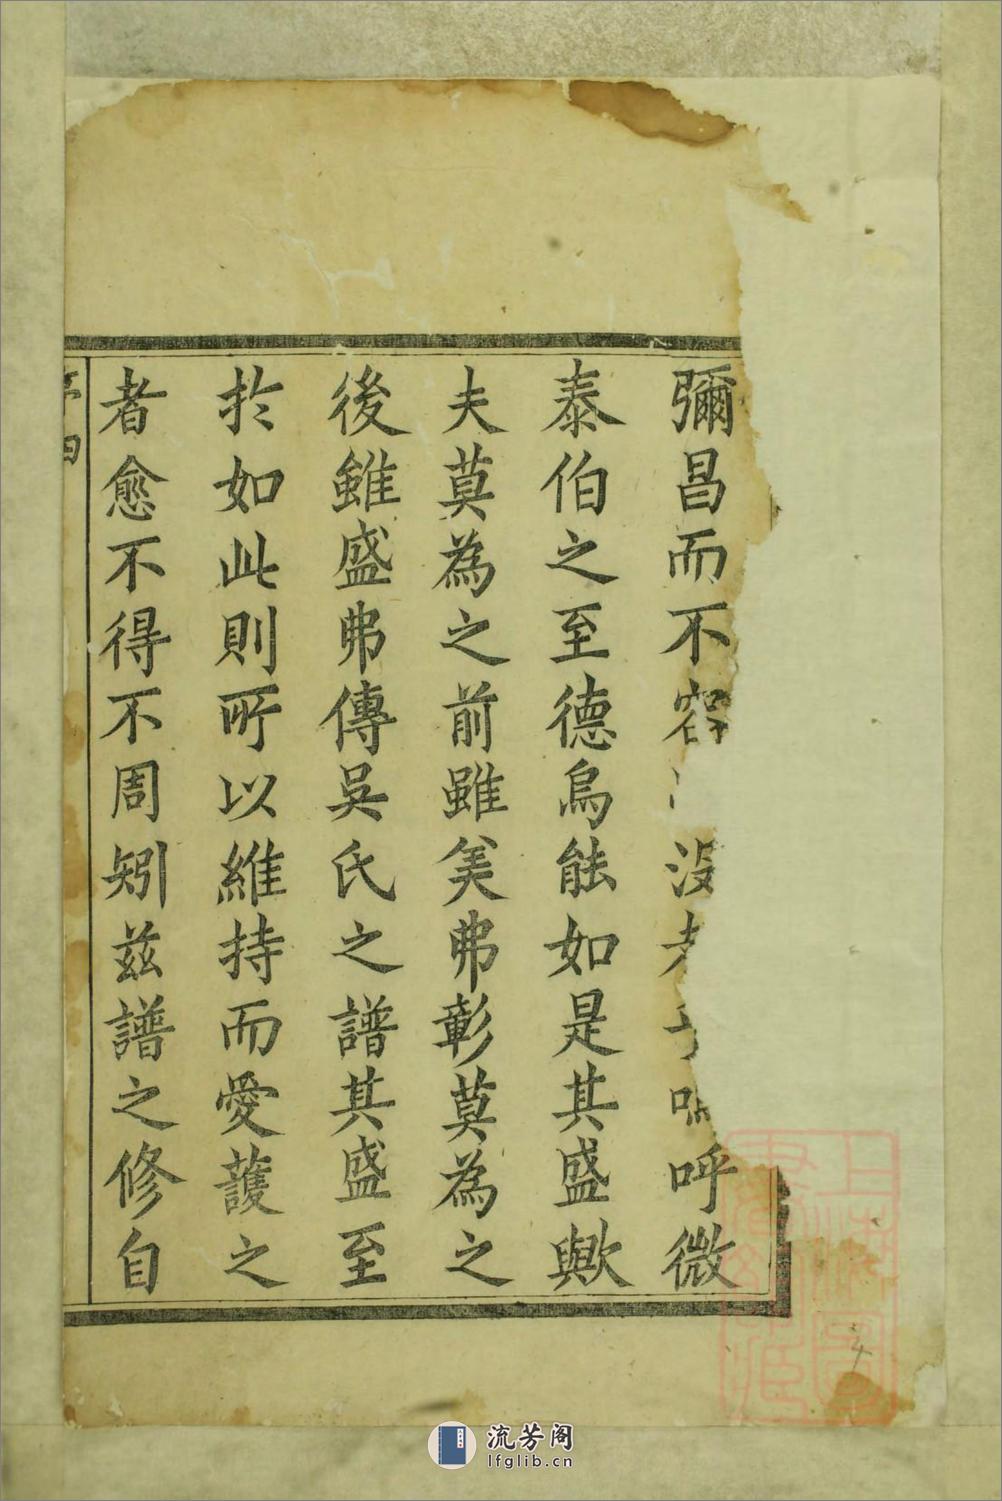 彌昌而不容沒呼微
泰伯之至德烏能如是其盛歟
夫莫為之前雖美弗彰莫為之
後雖盛弗傳吳氏之譜其盛至
於如此則所以維持而愛護之
者愈不得不周矧茲譜之修自
流芳阁
lfglib.cn